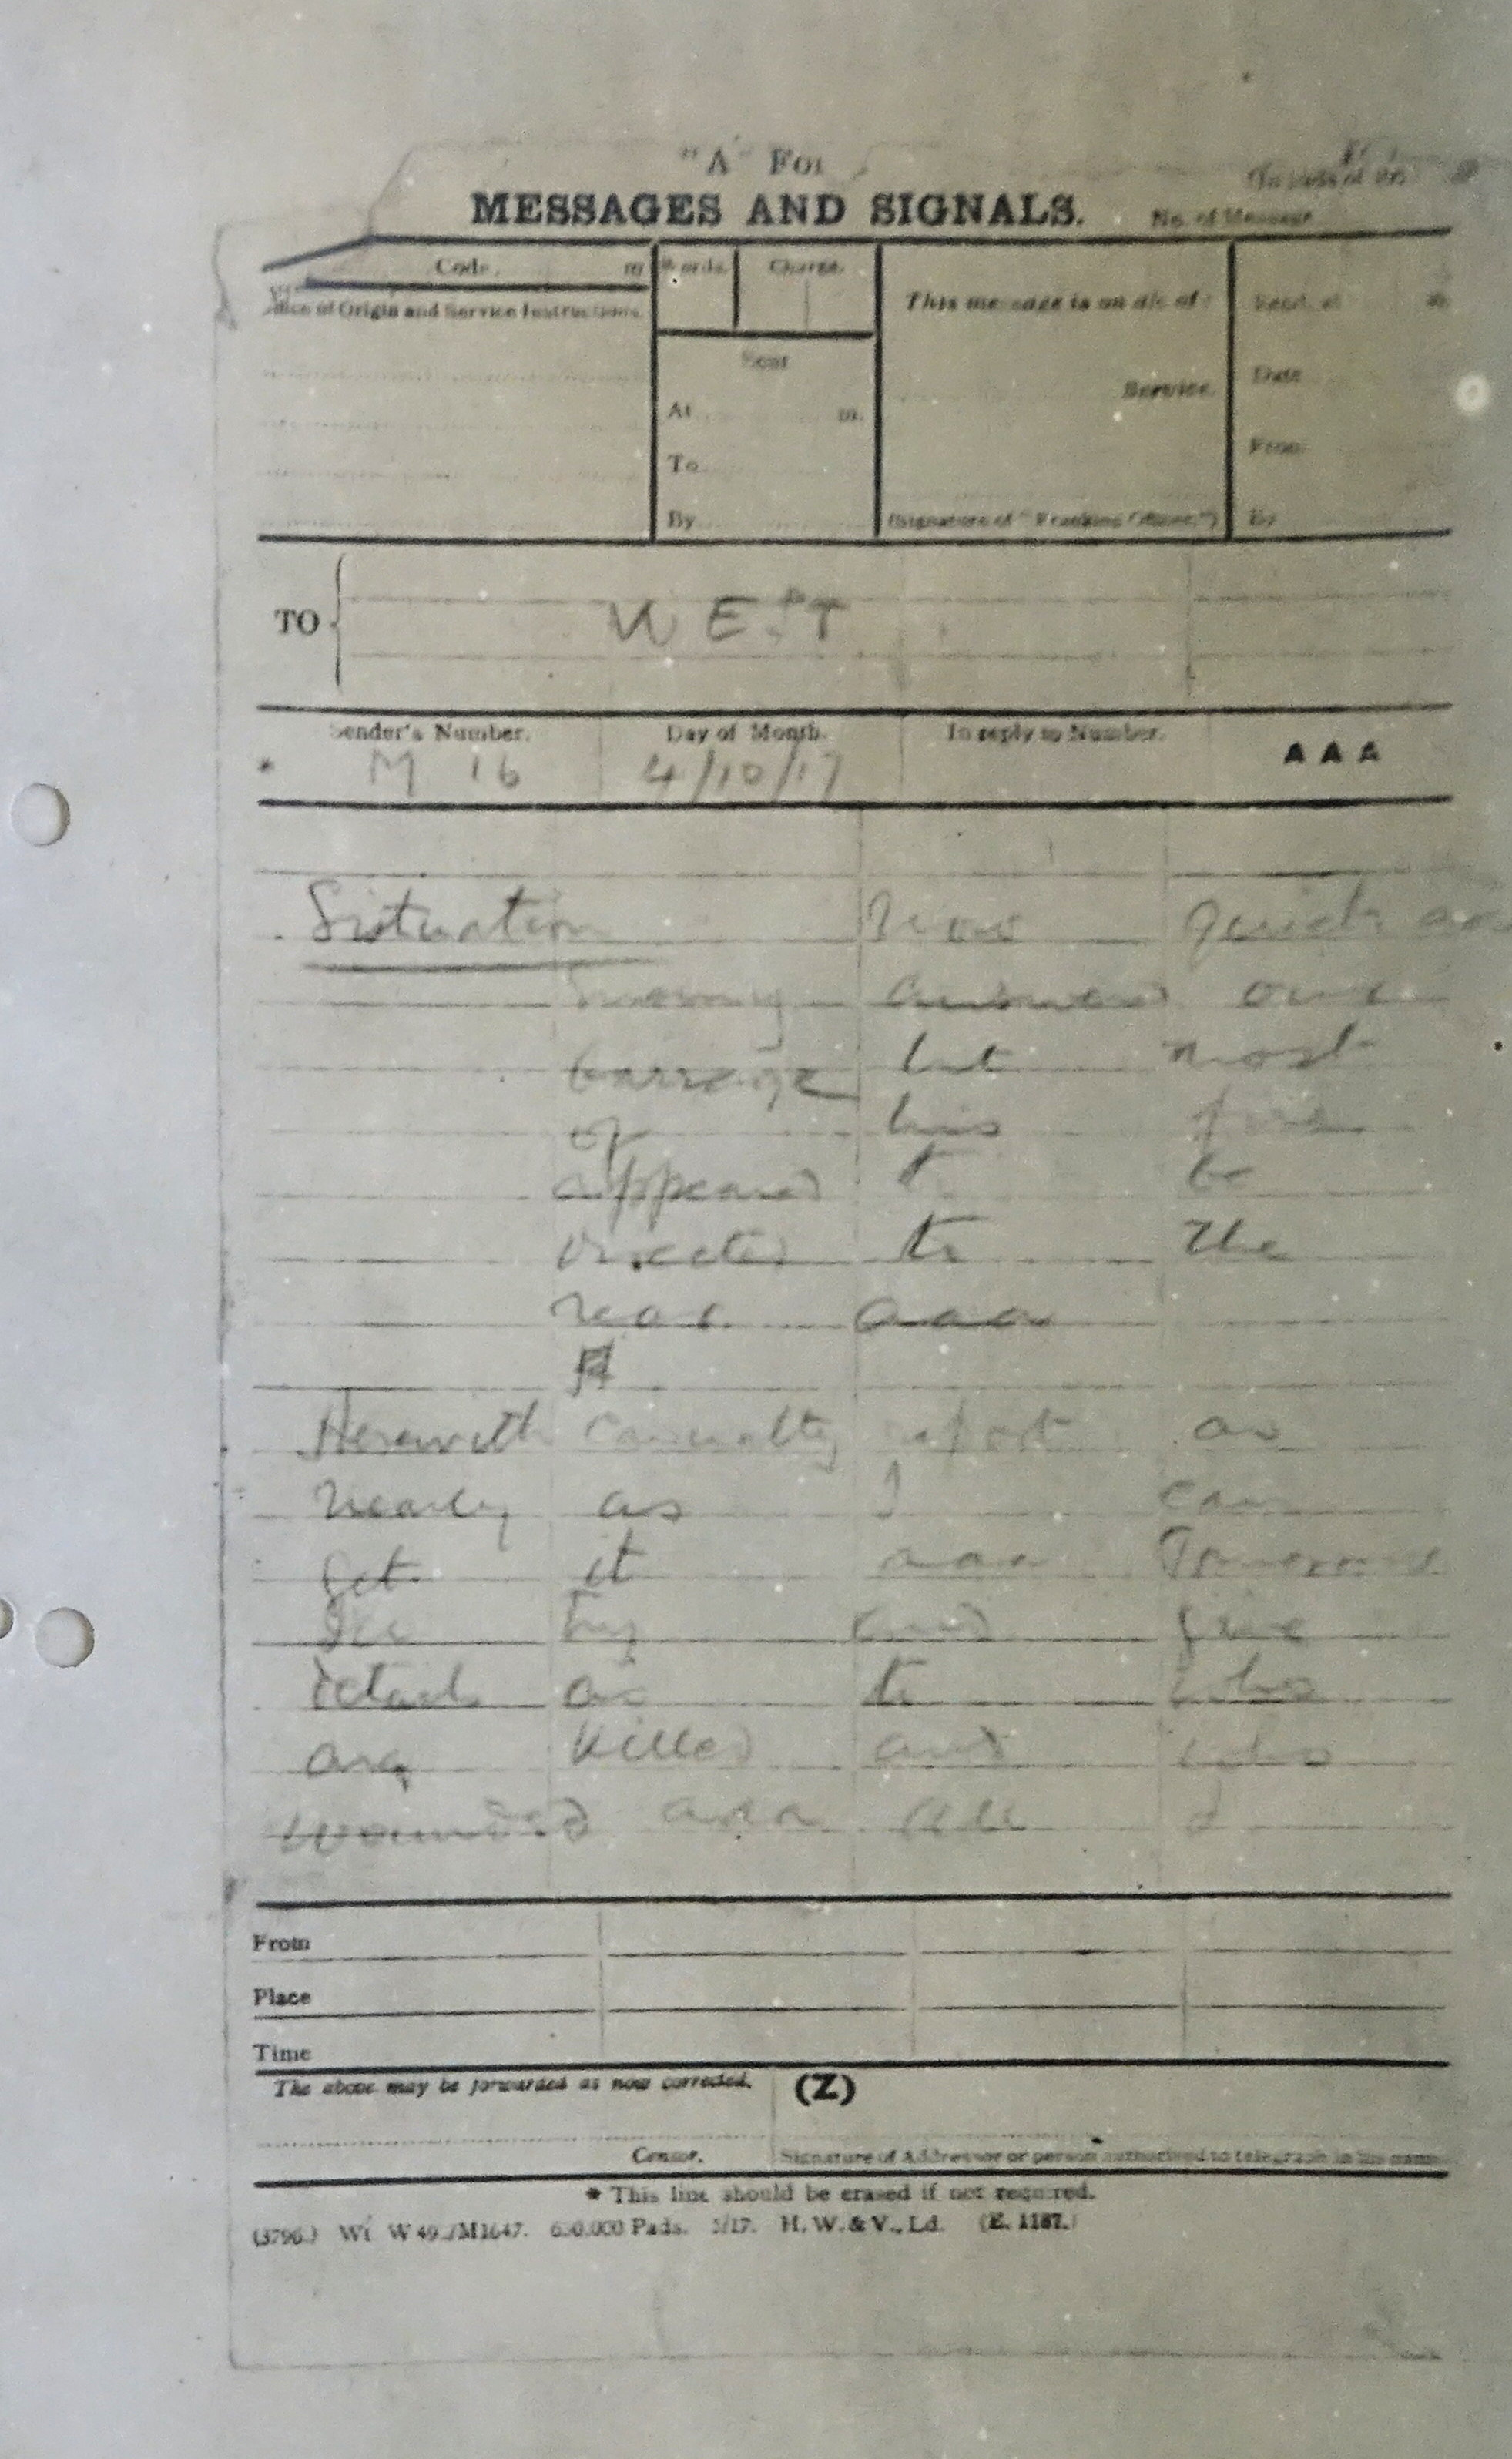 "A" For
MESSAGES AND SIGNALS. No. of Message
Code. m Words. Charge.
Office of Origin and Service Instructions. This message is on a/c of: Recd. at m
Sent
Service. Date
At m.
From
To
By (Signature of "Franking Officer.") By
TO WEST
Sender's Number. Day of Month. In reply to Number. AAA
* M 16 4/10/17
Situation Now quiet aaa
answered our
barrage but most
of his fire
appeared to be
directed to the
rear aaa
Herewith casualty report as
nearly as I can
get it aaa
give
details as to who
are killed and who
wounded aaa all I
From
Place
Time
The above may be forwarded as now corrected. (Z)
Censor. Signature of Addressor or person authorised to telegraph in his name
* This line should be erased if not required.
H. W. & V., Ld. (E. 1187.)